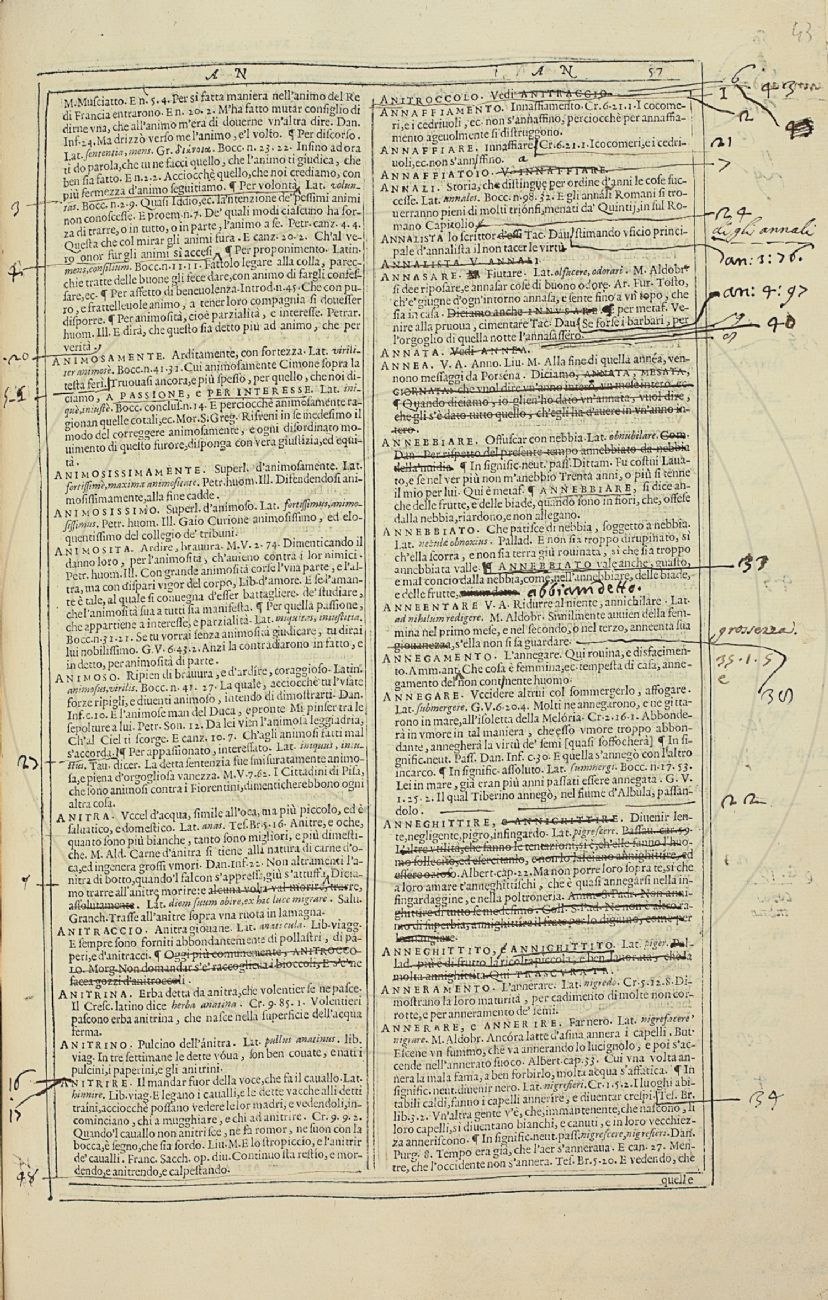 43
A N
A N 57
M. Musciatto. E n. 5. 4. Per si fatta maniera nell'animo del Re
di Francia entrarono. E n. 20. 2. M'ha fatto mutar consiglio di
dirne vna, che all'animo m'era di douerne vn'altra dire. Dan.
Inf. 24. Ma drizzò verso me l'animo, e'l volto. ¶ Per discorso.
Lat. sententia, mens. Gr. Bocc. n. 23. 22. Insino ad ora
ti do parola, che tu ne facci quello, che l'animo ti giudica, che
ben sia fatto. E n. 2. 2. Acciocchè quello, che noi crediamo, con
più fermezza d'animo seguitiamo. ¶ Per volontà. Lat. volun-
tas. Bocc. n. 29. 9. Quasi Iddio, ec. la'ntenzione de' pessimi animi
non conoscesse. E proem. n. 7. De' quali modi ciascuno ha for-
za di trarre, o in tutto, o in parte, l'animo a se. Petr. canz. 4. 4.
Questa che col mirar gli animi fura. E canz. 20. 2. Ch'al ve-
ro onor fur gli animi si accesi. ¶ Per proponimento. Latin.
mens, consilium. Bocc. n. 11. 11. Fattolo legare alla colla, parec-
chie tratte delle buone gli fece dare, con animo di fargli confes-
sare, ec. ¶ Per affetto di beneuolenza. Introd. n. 45. Che con pu-
ro, e fratelleuole animo, a tener loro compagnia si douesser
disporre. ¶ Per animosità, cioè parzialità, e interesse. Petrar.
huom. Ill. E dirà, che questo sia detto più ad animo, che per
verità.
ANIMOSAMENTE. Arditamente, con fortezza. Lat. virili-
ter animose. Bocc. n. 41. 31. Cui animosamente Cimone sopra la
testa ferì. Truouasi ancora, e più spesso, per quello, che noi di-
ciamo, A PASSIONE, e PER INTERESSE. Lat. ini-
què, iniustè. Bocc. conclus. n. 14. E perciocchè animosamente ra-
gionan quelle cotali, ec. Mor. S. Greg. Risveni in se medesimo il
modo del correggere animosamente, e ogni disordinato mo-
uimento di questo furore, disponga con vera giustizia, ed equi-
tà.
ANIMOSISSIMAMENTE. Superl. d'animosamente. Lat.
fortissimè, maxima animositate. Petr. huom. Ill. Difendendosi ani-
mosissimamente, alla fine cadde.
ANIMOSISSIMO. Superl. d'animoso. Lat. fortissimus, animo-
sissimus. Petr. huom. Ill. Gaio Curione animosissimo, ed elo-
quentissimo del collegio de' tribuni.
ANIMOSITA. Ardire, brauura. M. V. 2. 74. Dimenticando il
danno loro, per l'animosità, ch'anieno contra i lor nimici.
Petr. huom. Ill. Con grande animosità corse l'vna parte, e l'al-
tra, ma con dispari vigor del corpo, Lib. d'amore. E se l'aman-
te è tale, al quale si conuegna d'esser battagliere, de' studiare,
che l'animosità sua a tutti sia manifesta. ¶ Per quella passione,
che appartiene a interesse, e parzialità. Lat. iniquitas, iniustitia.
Bocc. n. 31. 21. Se tu vorrai senza animosità giudicare, tu dirai
lui nobilissimo. G. V. 6. 43. 2. Anzi la contradiarono in fatto, e
in detto, per animosità di parte.
ANIMOSO. Ripien di brauura, e d'ardire, coraggioso. Latin.
animosus, virilis. Bocc. n. 41. 27. La quale, acciocchè tu l'vsate
forze ripigli, e diuenti animoso, intendo di dimostrarti. Dan.
Inf. c. 10. E l'animose man del Duca, e pronte Mi pinser tra le
sepolture a lui. Petr. Son. 12. Da lei vien l'animosa leggiadria,
Ch'al Ciel ti scorge. E canz. 10. 7. Ch'agli animosi fatti mal
s'accorda. ¶ Per appassionato, interessato. Lat. iniquus, iniu-
stus. Tau. dicer. La detta sentenzia fue smisuratamente animo-
sa, e piena d'orgogliosa vanezza. M. V. 7. 62. I Cittadini di Pisa,
che sono animosi contra i Fiorentini, dimenticherebbono ogni
altra cosa.
ANITRA. Vccel d'acqua, simile all'oca, ma più piccolo, ed è
saluatico, e domestico. Lat. anas. Tes. Br. 5. 16. Anitre, e oche,
quanto sono più bianche, tanto sono migliori, e più dimesti-
che. M. Ald. Carne d'anitra si tiene alla natura di carne d'o-
ca, ed ingenera grossi vmori. Dan. Inf. 22. Non altramenti l'a-
nitra di botto, quando'l falcon s'appressa, giù s'attuffa. Dicia-
mo trarre all'anitre, morire: e alcuna volta val morire, trarre,
assolutamente. Lat. diem suum obire, ex hac luce migrare. Salu.
Granch. Trasse all'anitre sopra vna ruota in lamagna.
ANITRACCIO. Anitra giouane. Lat. anaticula. Lib. viagg.
E sempre sono forniti abbondantemente di pollastri, di pa-
peri, e d'anitracci. ¶ Oggi più comunemente, ANITROCCO-
LO. Morg. Non domandar s'e' raccoglieva i bioccoli, E s'e' ne
facea gozzi d'anitroccoli.
ANITRINA. Erba detta da anitra, che volentier se ne pasce.
Il Cresc. latino dice herba anatina. Cr. 9. 85. 1. Volentieri
pascono erba anitrina, che nasce nella superficie dell'acqua
ferma.
ANITRINO. Pulcino dell'ànitra. Lat. pullus anatinus. lib.
viag. In tre settimane le dette vóua, son ben couate, e nati i
pulcini, i paperini, e gli anitrini.
ANITRIRE. Il mandar fuor della voce, che fa il cauallo. Lat.
hinnire. Lib. viag. E legano i caualli, e le dette vacche alli detti
traini, acciocchè possano vedere le lor madri, e vedendoli, in-
cominciano, chi a mugghiare, e chi ad anitrire. Cr. 9. 9. 2.
Quando'l cauallo non anitrisce, nè fa romor, ne suon con la
bocca, è segno, che sia fordo. Liu. M. E lo stropiccio, e l'anitrir
de' caualli. Franc. Sacch. op. diu. Continuo sta restio, e mor-
dendo, e anitrendo, e calpestando.
ANITROCCOLO. Vedi ANITRACCIO.
ANNAFFIAMENTO. Innaffiamento. Cr. 6. 21. 1. I cocome-
ri, e i cedriuoli, ec. non s'annaffino, perciocchè per annaffia-
mento ageuolmente si distruggono.
ANNAFFIARE. Innaffiare. Cr. 6. 21. 1. I cocomeri, e i cedri-
uoli, ec. non s'annaffino.
ANNAFFIATOIO. V. INNAFFIARE.
ANNALI. Storia, che distingue per ordine d'anni le cose suc-
cesse. Lat. annales. Bocc. n. 98. 32. E gli annali Romani si tro-
uerranno pieni di molti trionfi, menati da' Quintij, in sul Ro-
mano Capitolio.
ANNALISTA lo scrittor d'essi Tac. Dau. stimando vficio princi-
pale d'annalista il non tacer le virtù
ANNALISTA V. ANNALI.
ANNASARE. Fiutare. Lat. olfacere, odorari. M. Aldobr.
si dee riposare, e annasar cose di buono odore. Ar. Fur. Tosto,
ch'e' giugne d'ogn'intorno annasa, e sente fino a vn topo, che
sia in casa. Diciamo anche INNVSARE. ¶ per metaf. Ve-
nire alla pruoua, cimentare Tac. Dau. Se forse i barbari, per
l'orgoglio di quella notte l'annasassero.
ANNATA. Vedi ANNEA.
ANNEA. V. A. Anno. Liu. M. Alla fine di quella annèa, ven-
nono messaggi da Porsena. Diciamo, ANNATA, MESATA,
GIORNATA: che vuol dire vn'anno intero, vn mese intero, ec.
¶ Quando diciamo, io gli en'ho dato vn'annata, vuol dire,
che gli s'è dato tutto quello, ch'egli ha d'auere in vn'anno in-
tero.
ANNEBBIARE. Offuscar con nebbia. Lat. obnubilare. Com.
Dan. Per rispetto del presente tempo annebbiato da nebbia
della'nuidia. ¶ In signific. neut. pass. Dittam. Fu costui Laua-
to, e se nel ver più non m'anebbio Trenta anni, o più si tenne
il mio per lui. Qui è metaf. ¶ ANNEBBIARE, si dice an-
che delle frutte, e delle biade, quando sono in fiori, che, offese
dalla nebbia, riardono, e non allegano.
ANNEBBIATO. Che patisce di nebbia, soggetto a nebbia.
Lat. nebulæ obnoxius. Pallad. E non sia troppo dirupinato, si
ch'ella scorra, e non sia terra giù rouinata, sì che sia troppo
annebbiata valle. ¶ ANNEBBIATO vale anche, guasto,
e mal concio dalla nebbia, come, nell'annebbiare, delle biade,
e delle frutte, abbiam detto.
ANNEENTARE V. A. Ridurre al niente, annichilare. Lat.
ad nihilum redigere. M. Aldobr. Similmente auuien della fem-
mina nel primo mese, e nel secondo, o nel terzo, anneenta sua
giouanezza, s'ella non si sa guardare.
ANNEGAMENTO. L'annegare. Qui rouina, e disfacimen-
to. Amm. ant. Che cosa è femmina, ec. tempesta di casa, anne-
gamento del non contenente huomo.
ANNEGARE. Vccidere altrui col sommergerlo, affogare.
Lat. submergere. G. V. 6. 20. 4. Molti ne annegarono, e ne gitta-
rono in mare, all'isoletta della Melória. Cr. 2. 16. 1. Abbonde-
rà in vmore in tal maniera, che esso vmore troppo abbon-
dante, annegherà la virtù de' semi [quasi soffocherà] ¶ In si-
gnific. neut. Pass. Dan. Inf. c. 30. E quella s'annegò con l'altro
incarco. ¶ In signific. assoluto. Lat. summergi. Bocc. n. 17. 53.
Lei in mare, già eran più anni passati essere annegata. G. V.
1. 25. 2. Il qual Tiberino annegò, nel fiume d'Albula, passan-
dolo.
ANNEGHITTIRE, e ANNICHITTIRE. Diuenir len-
te, negligente, pigro, infingardo. Lat. pigrescere.
essere ozioso. Albert. cap. 22. Ma non porre loro sopra te, si che
a loro amare t'anneghittischi, che è quasi annegarsi nella in-
fingardaggine, e nella poltroneria.
ANNEGHITTITO, e ANNIGHITTITO. Lat. piger.
molta annighittita. Qui TRASCVRATA.
ANNERAMENTO. L'annerare. Lat. nigredo. Cr. 5. 12. 8. Di-
mostrano la loro maturità, per cadimento di molte non cor-
rotte, e per anneramento de' semi.
ANNERARE, e ANNERIRE. Far nero. Lat. nigrefacere,
nigrare. M. Aldobr. Ancóra latte d'asina annera i capelli. But.
Escene vn fummo, che va annerando lo lucignolo, e poi s'ac-
cende nell'annerato fuoco. Albert. cap. 33. Cui vna volta an-
nera la mala fama, a ben forbirlo, molta acqua s'affatica. ¶ In
signific. neut. diuenir nero. Lat. nigrefieri. Cr. 1. 5. 2. I luoghi abi-
tabili caldi, fanno i capelli annerire, e diuentar crespi. Tes. Br.
lib. 3. 2. Vn'altra gente v'è, che, immantenente, che nascono, li
loro capelli, si diuentano bianchi, e canuti, e in loro vecchiez-
za anneriscono. ¶ In signific. neut. pass. nigrescere, nigrefieri. Dan.
Purg. 8. Tempo era già, che l'aer s'anneraua. E can. 27. Men-
tre, che l'occidente non s'annera. Tes. Br. 5. 20. E vedendo, che
quelle
3
4
20
5-6
23
9
16
17
48
6
1
2
21
7
24
di gli annali
an: 3: 76.
an: 4: 97
9
40
8
33
grossezza.
35. 1. 5
e
38
22
34